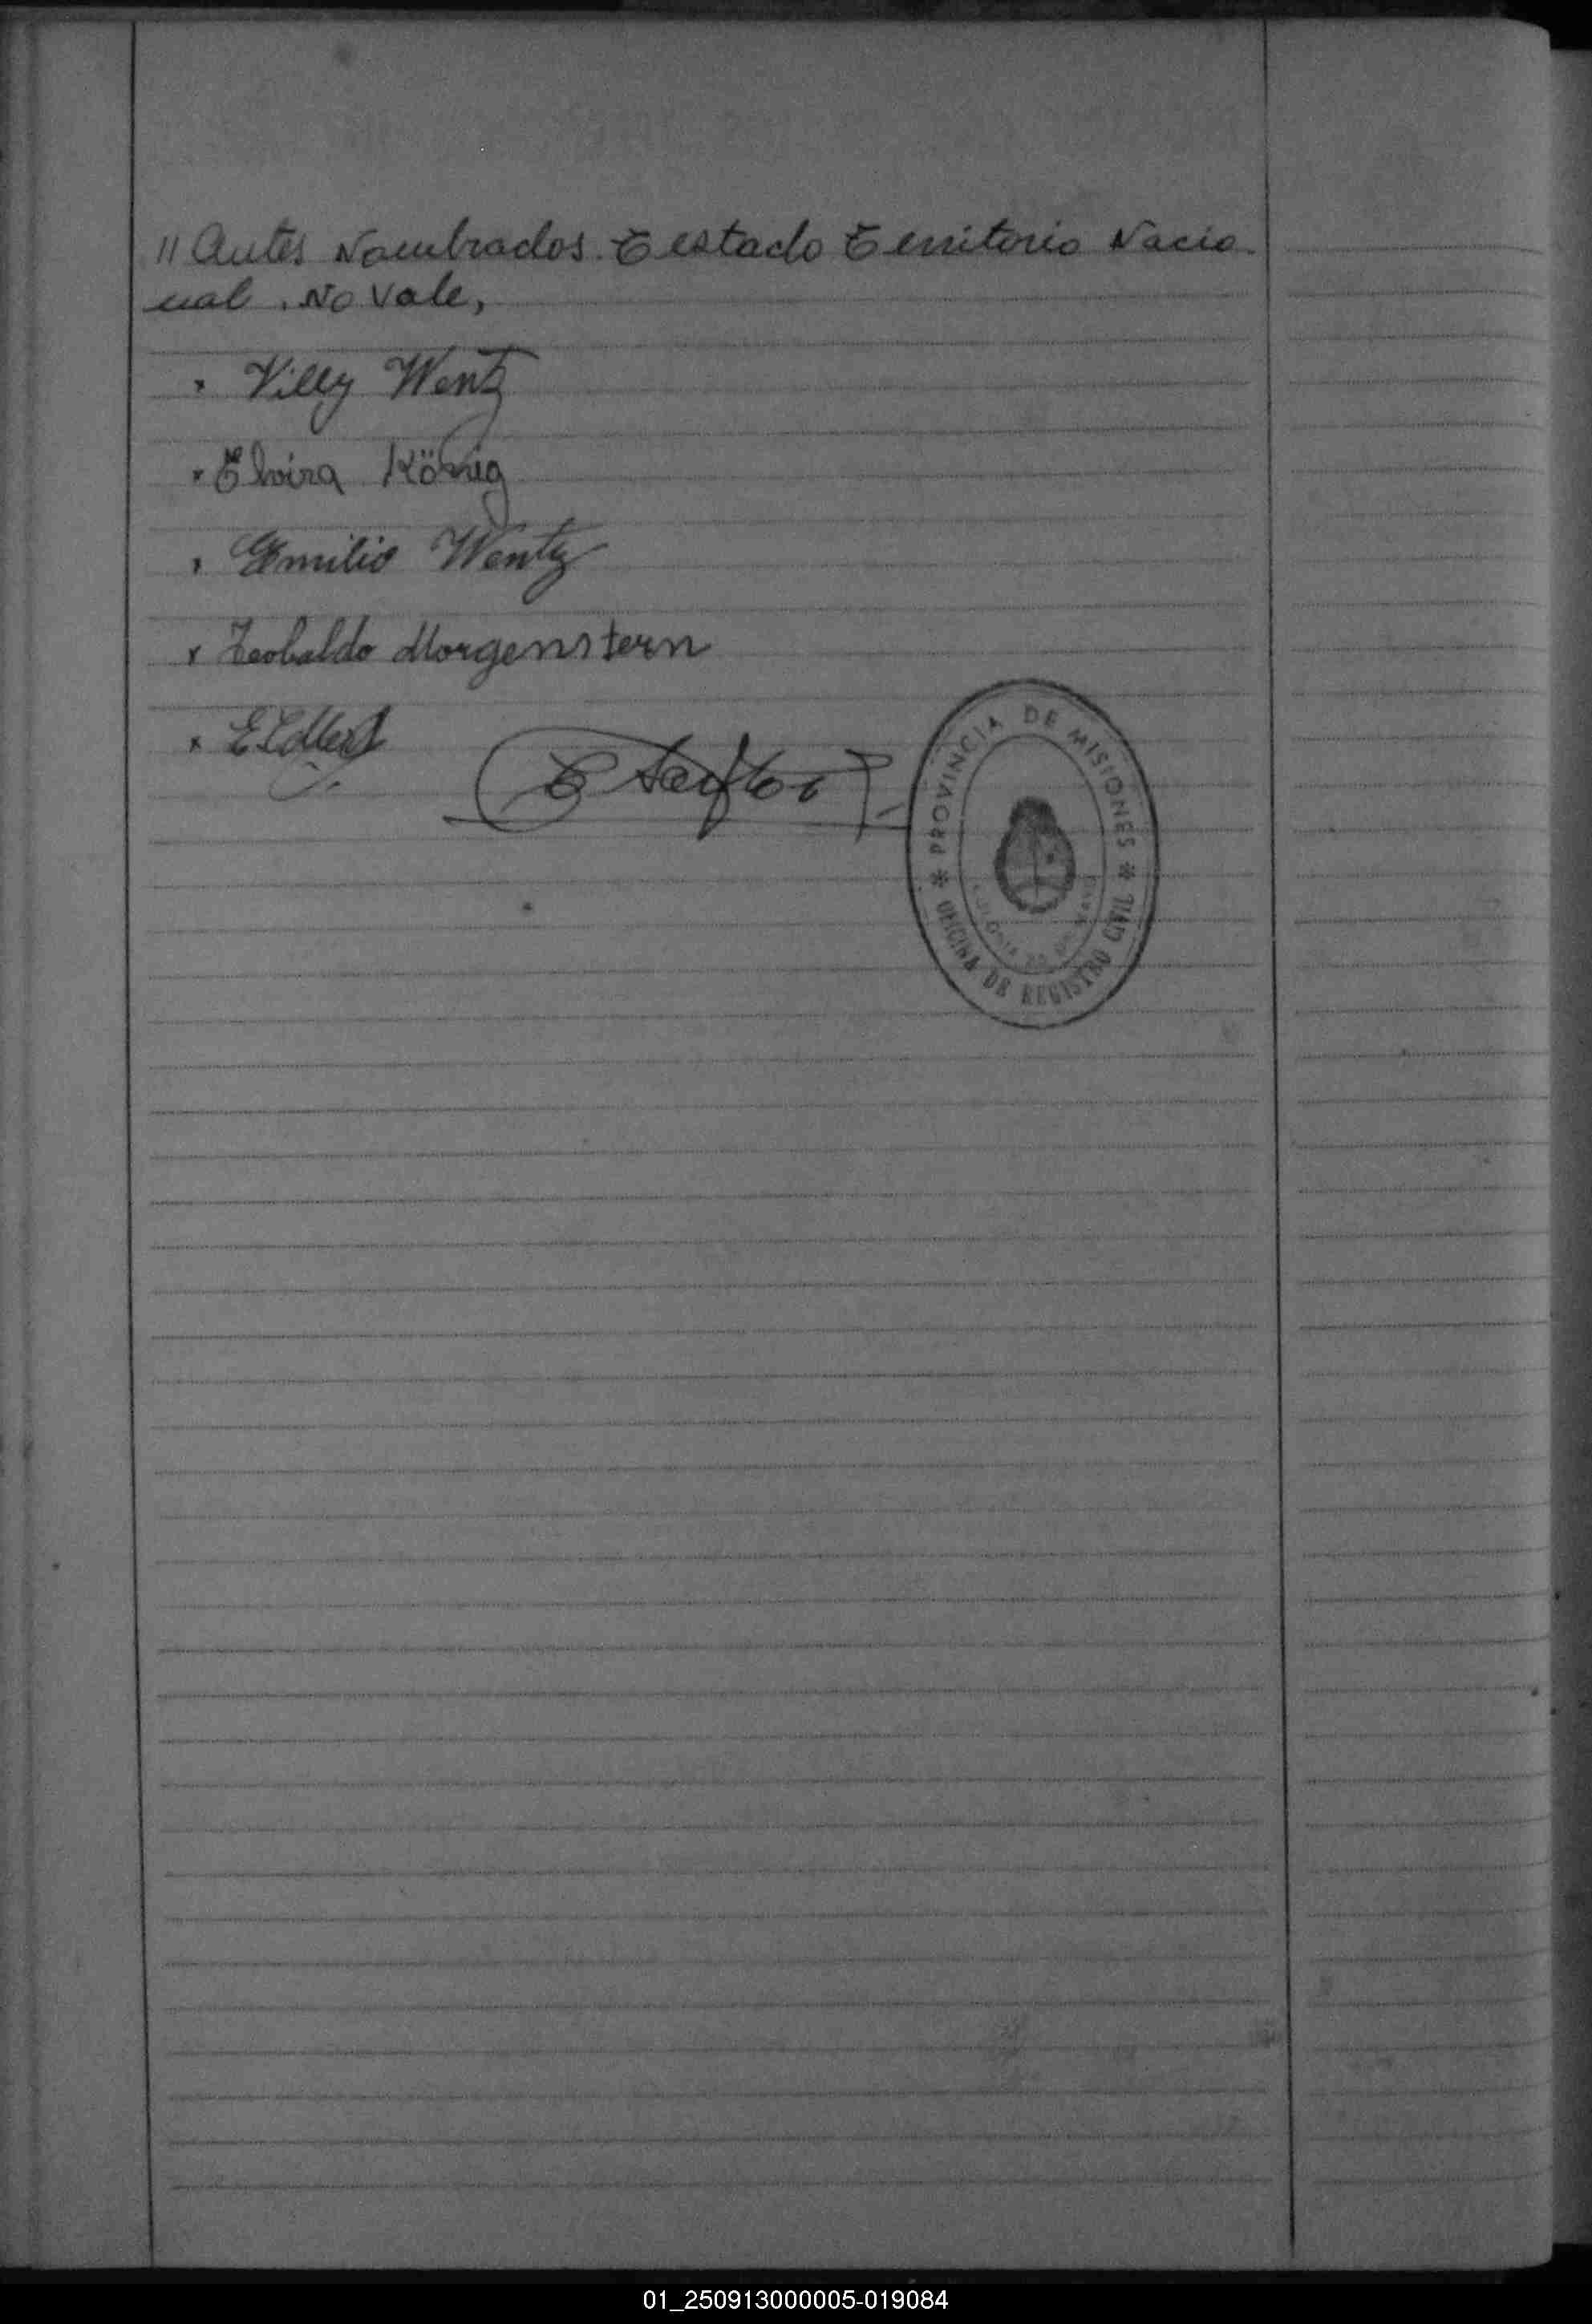 // Antes Nombrados. Testado Territorio Nacio
nal. No Vale,
x Villy Wentz
x Elvira König
x Emilio Wentz
x Teobaldo Morgenstern
x
PROVINCIA DE MISIONES
* OFICINA DE REGISTRO CIVIL *
01_250913000005-019084